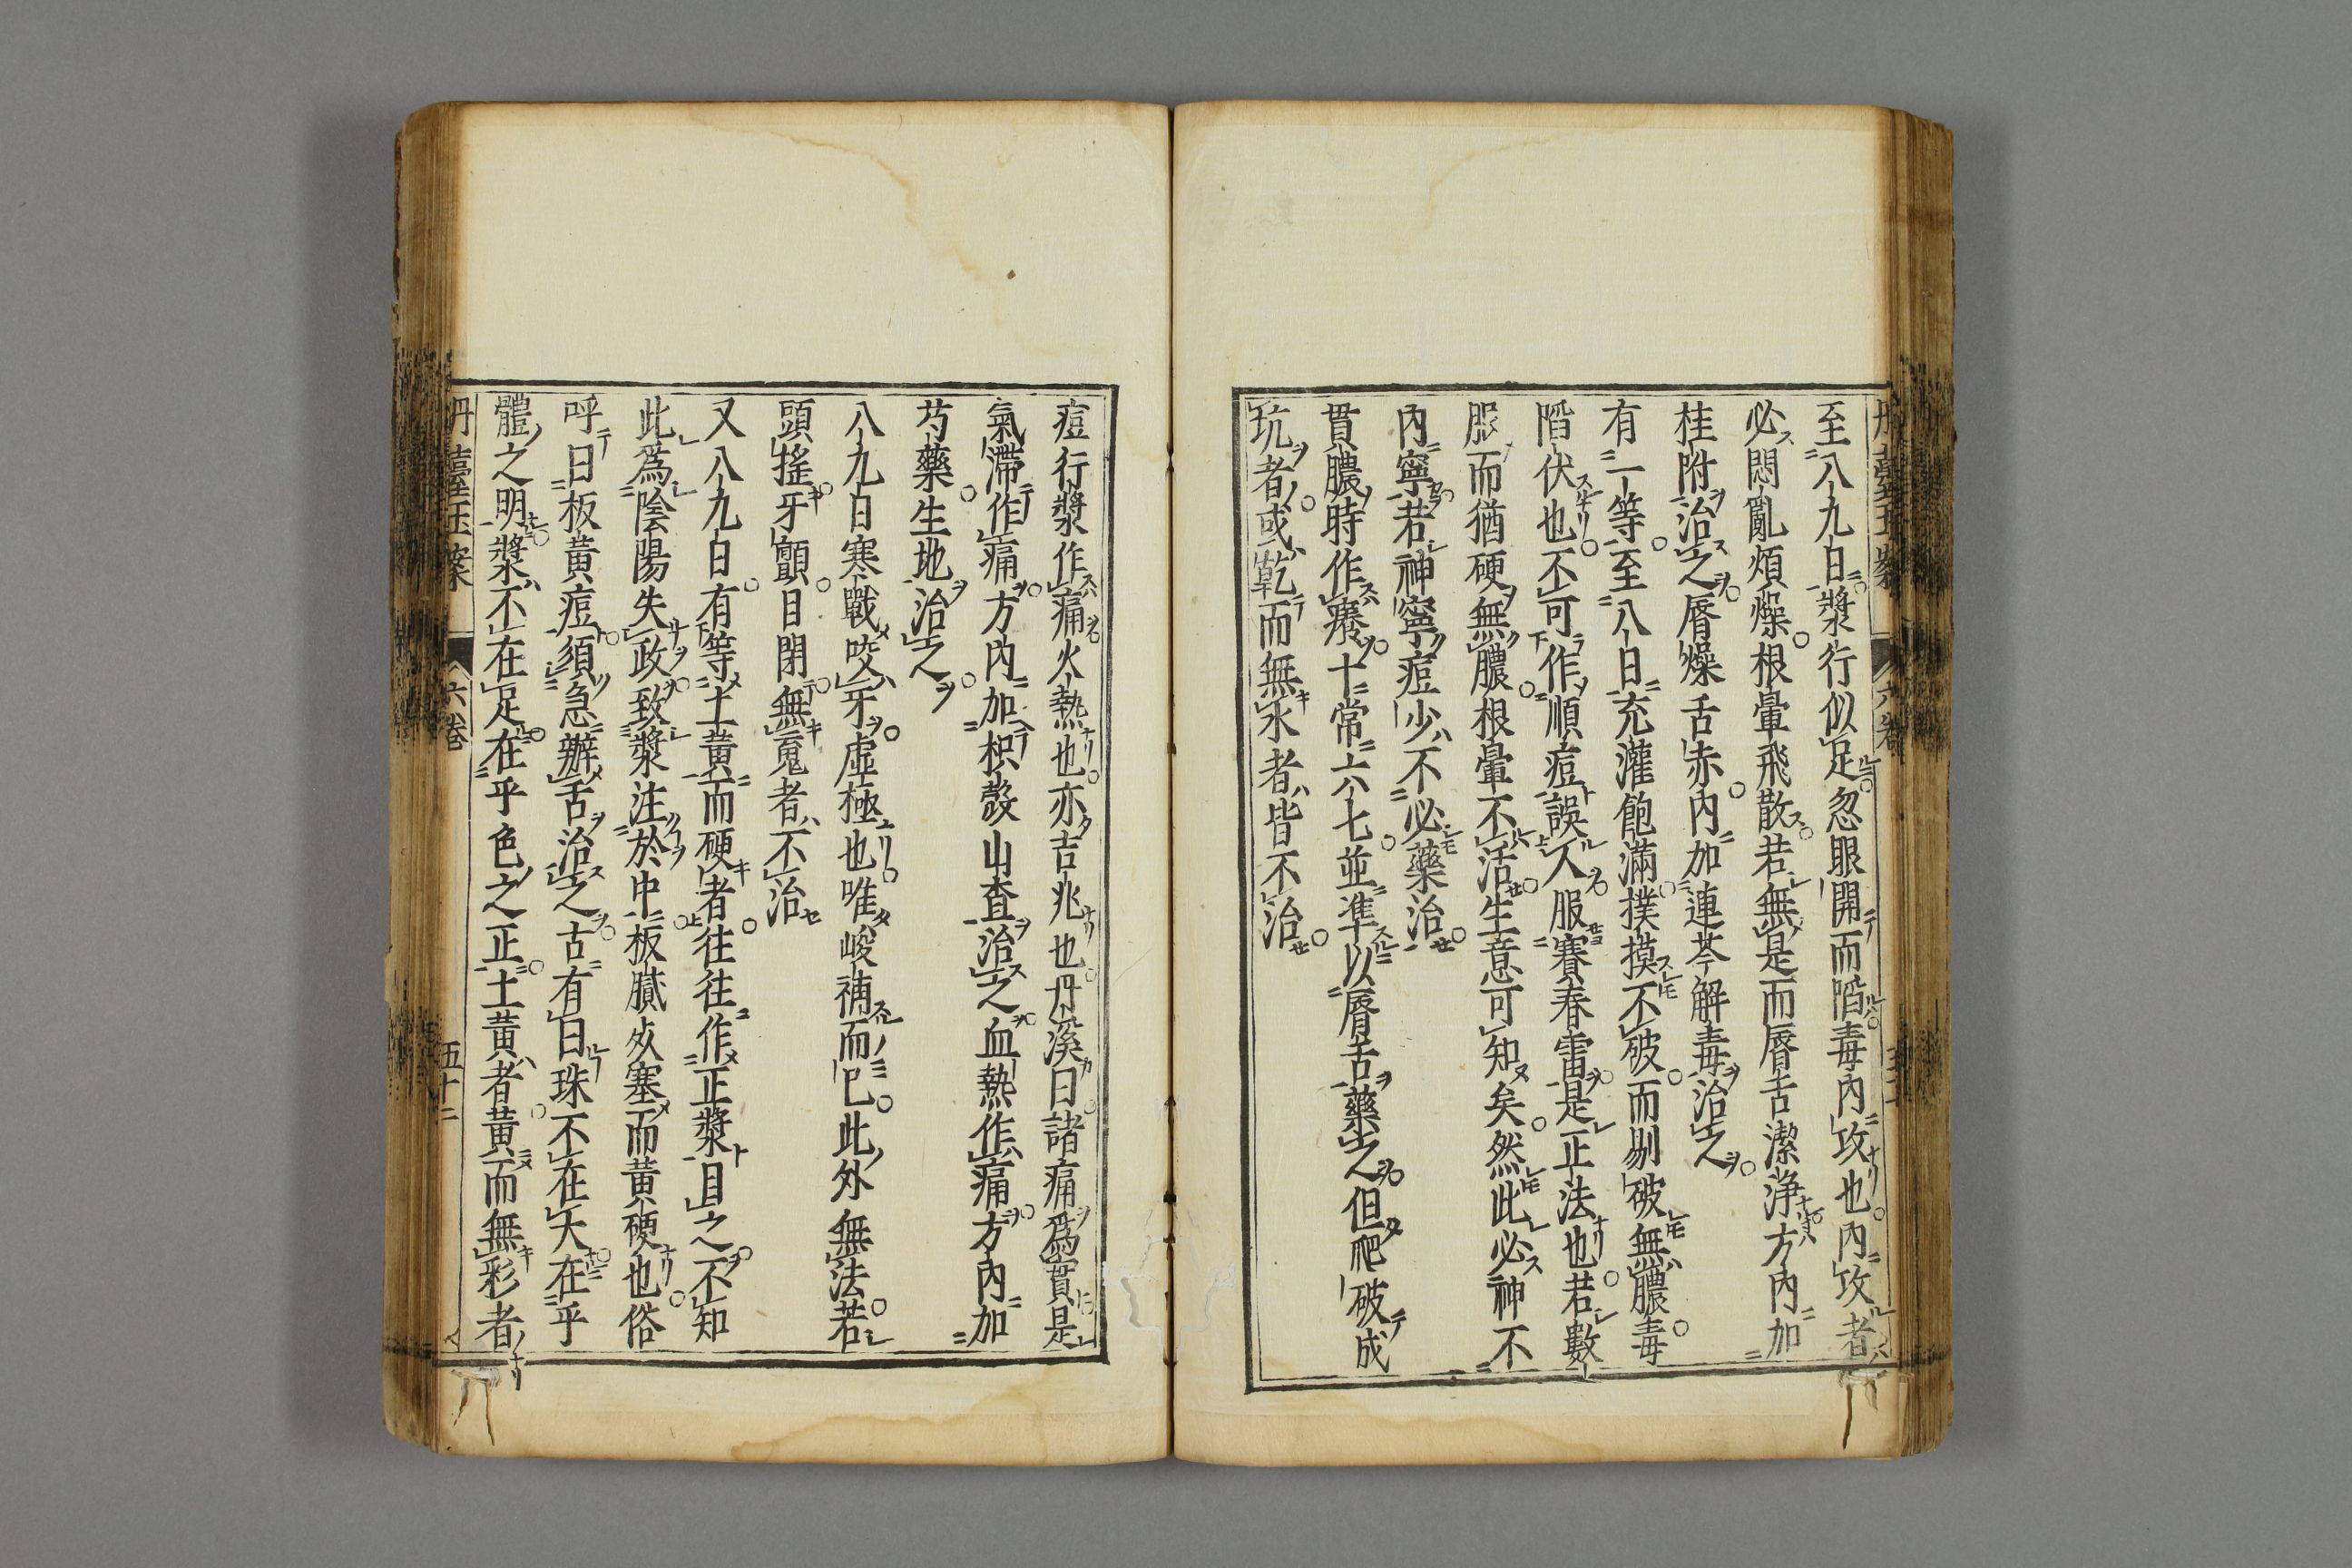 至八九日漿行似足忽眼開而陷毒內攻也內攻者
必悶亂煩燥根暈飛散若無是而唇舌潔浄方內加
桂附治之唇燥舌赤內加連芩解毒治之
有一等至八日充灌飽滿撲摸不破而剔破無膿毒
陷伏也不可作順痘誤人服賽春雷是正法也若數
服而猶硬無膿根暈不活生意可知矣然此必神不
內寧若神寧痘少不必藥治
貫膿時作癢十常六七並準以唇舌藥之但爬破成
坑者或乾而無水者皆不治
痘行漿作痛火熱也亦吉兆也丹溪曰諸痛爲實是
氣滯作痛方內加枳殼山查治之血熱作痛方內加
芍藥生地治之
八九日寒戰咬牙虛極也唯峻補而已此外無法若
頭搖牙顫目閉無魂者不治
又八九日有等土黃而硬者往往作正漿目之不知
此爲陰陽失政致漿注於中板膩攻塞而黃硬也俗
呼曰板黃痘須急辨舌治之古有曰珠不在大在乎
體之明漿不在足在乎色之正土黃者黃而無彩者
丹臺玉案 六卷 五十二